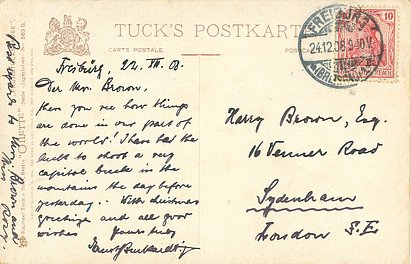 TUCK'S POSTKARTE
CARTE POSTALE.
24.12.08.9-10V.
10
Freiburg, 22. XII. 08.
Der Mr. Brown,
here you see how things
are done in our part of
the world! I have had the
luck to shoot a very
capital buck in the
mountains the day before
yesterday. With christmas
greetings and all good
wishes Yours truly
Harry Brown, Esq.
16 Venner Road
Sydenham
London S.E.
Best regards to Mrs. Brown and